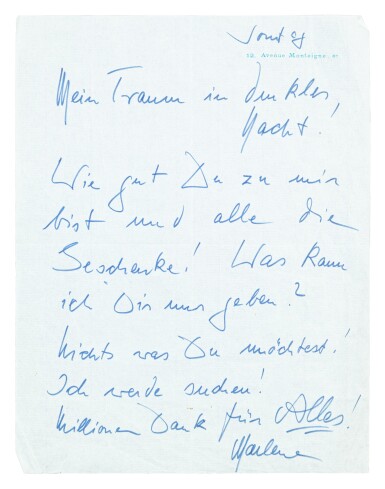 Sonntag
12, Avenue Montaigne, 8e
Mein Traum in dunkler
Nacht!
Wie gut Du zu mir
bist und alle die
Geschenke! Was kann
ich Dir nur geben?
Nichts was Du möchtest!
Ich werde suchen!
Millionen Dank für Alles!
Marlene